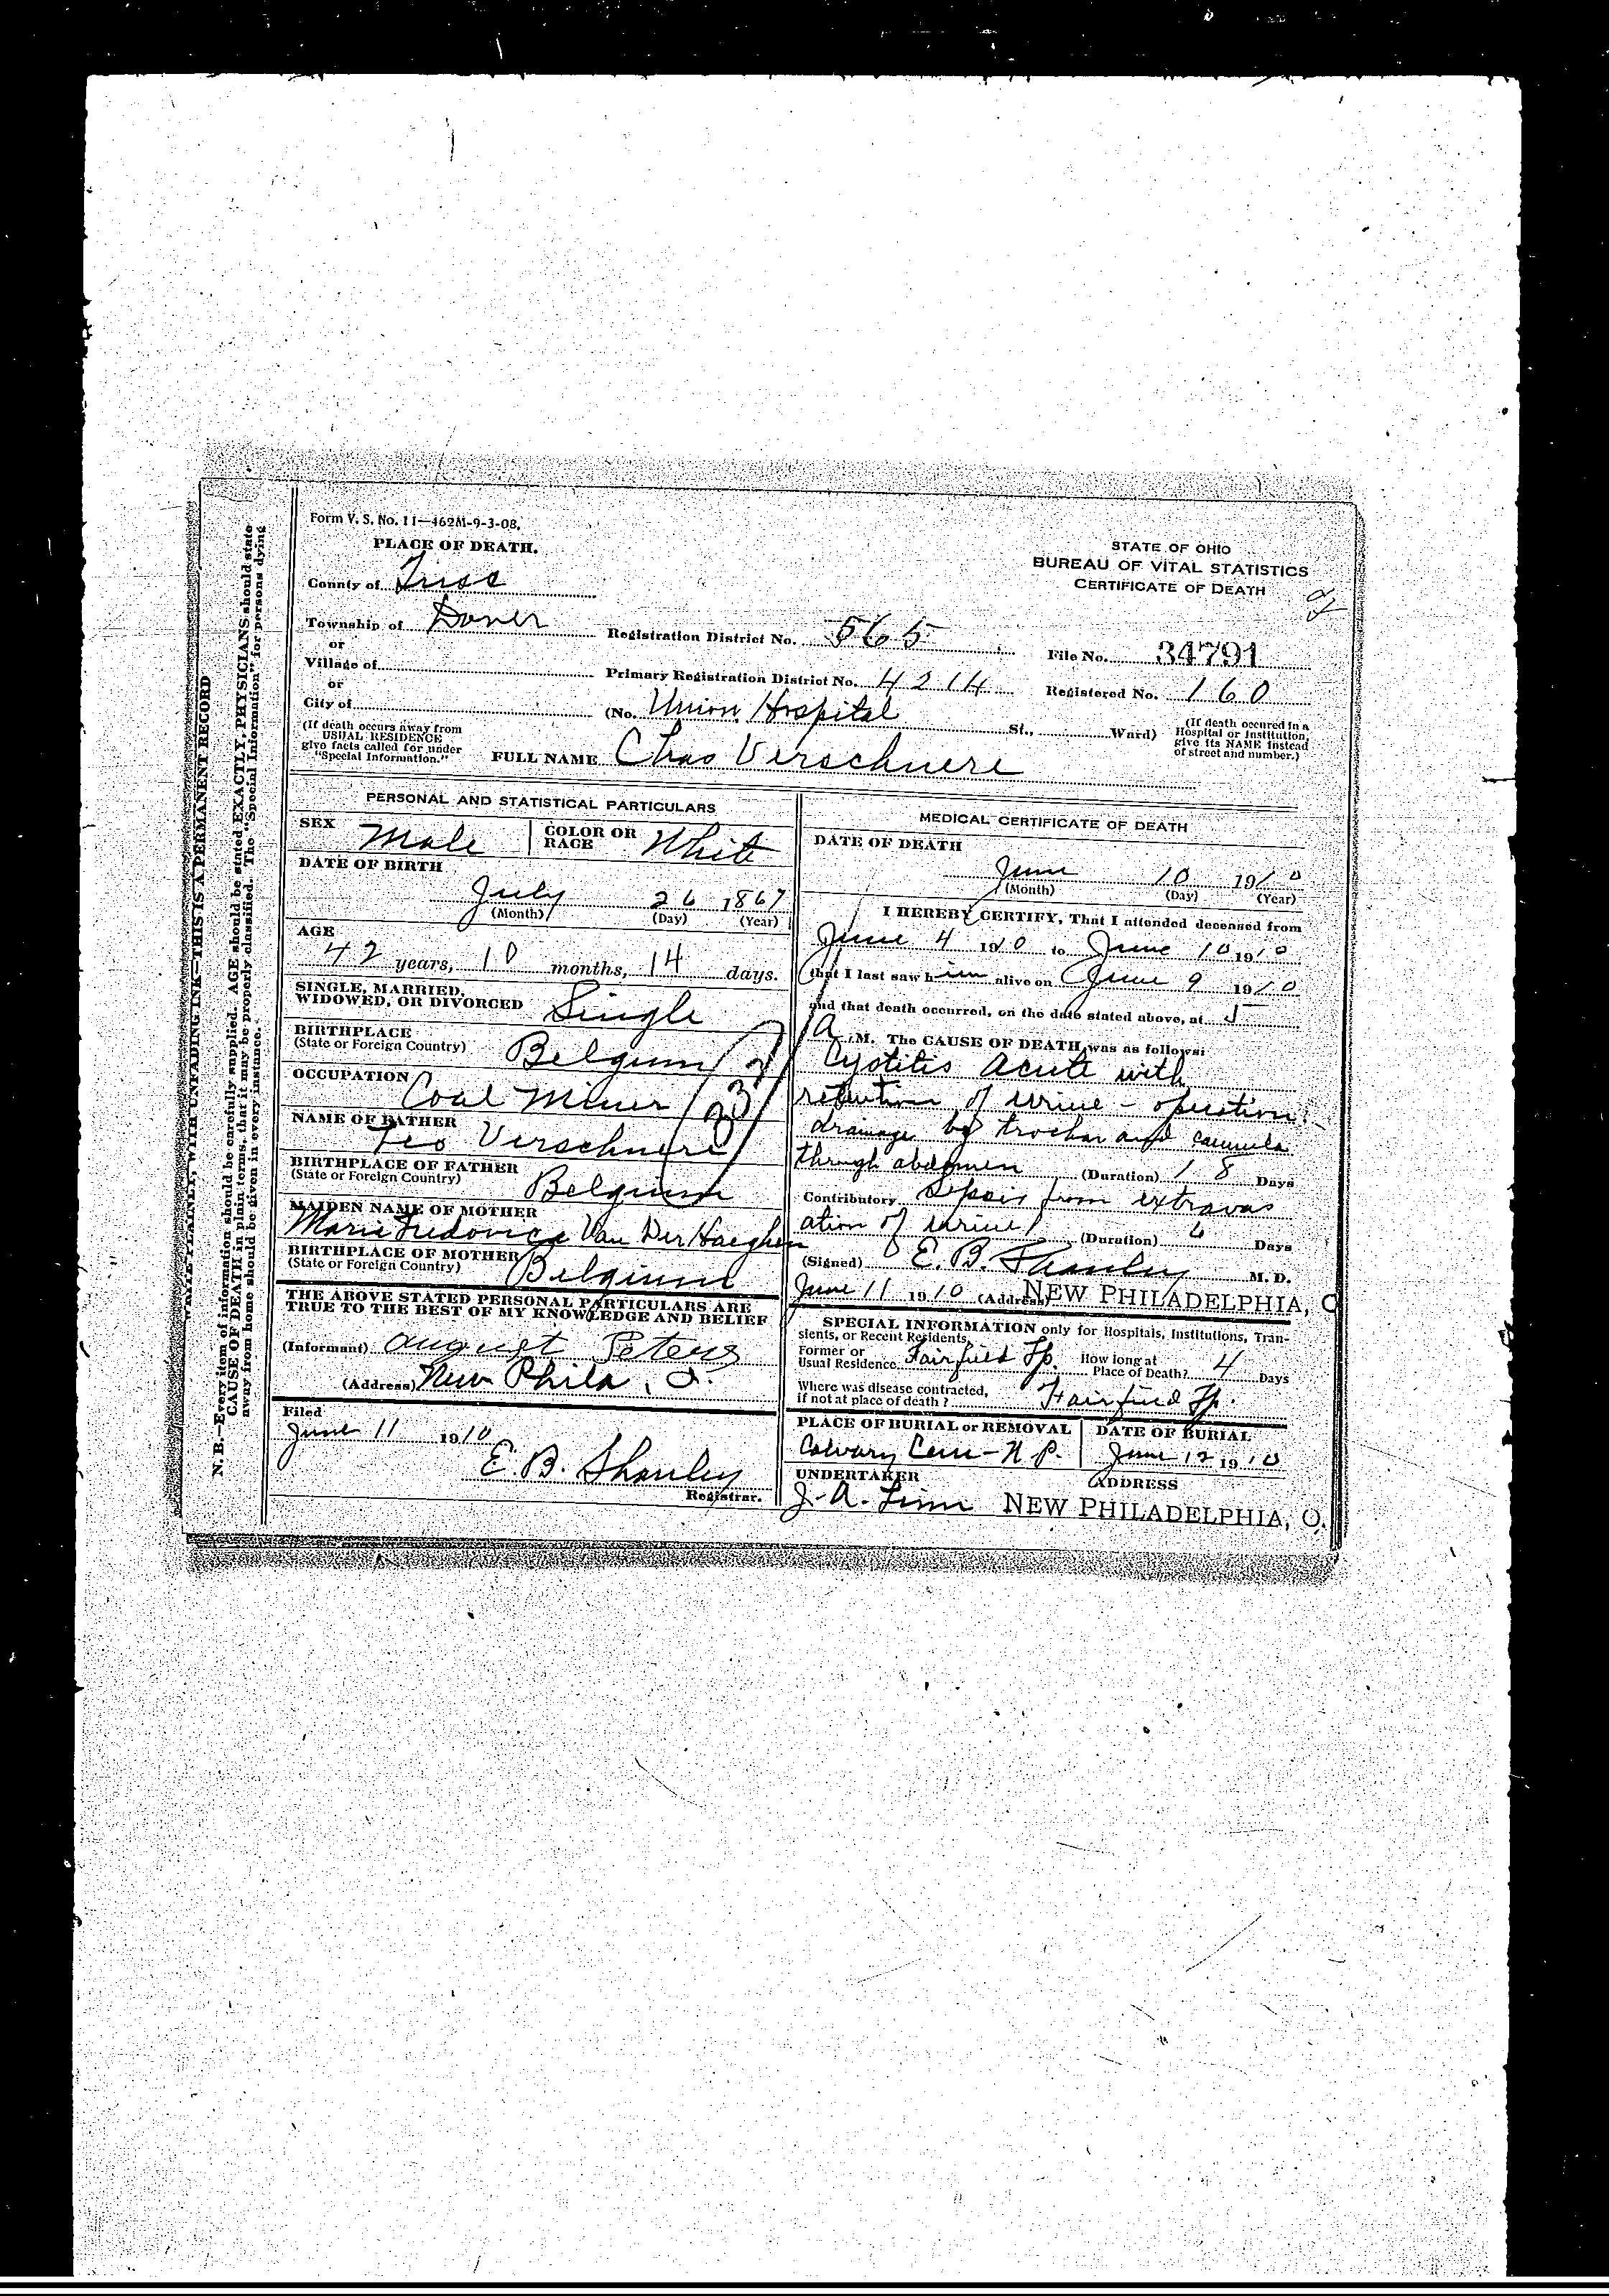 WRITE PLAINLY, WITH UNFADING INK—THIS IS A PERMANENT RECORD
N. B.—Every item of information should be carefully supplied. AGE should be stated EXACTLY, PHYSICIANS should state
CAUSE OF DEATH in plain terms, that it may be properly classified. The "Special Information" for persons dying
away from home should be given in every instance.
Form V. S. No. 11—462M-9-3-08.
PLACE OF DEATH.
STATE OF OHIO
BUREAU OF VITAL STATISTICS
CERTIFICATE OF DEATH
County of Tusc
Township of Dover Registration District No. 565 File No. 34791
or
Village of Primary Registration District No. 4214 Registered No. 160
or
City of (No. Union Hospital St., Ward) (If death occured in a Hospital or Institution, give its NAME instead of street and number.)
(If death occurs away from USUAL RESIDENCE give facts called for under "Special Information.")
FULL NAME Chas Verschuere
PERSONAL AND STATISTICAL PARTICULARS
SEX Male COLOR OR RACE White
DATE OF BIRTH
July 26 1867
(Month) (Day) (Year)
AGE
42 years, 10 months, 14 days.
SINGLE, MARRIED, WIDOWED, OR DIVORCED Single
BIRTHPLACE (State or Foreign Country) Belgium
OCCUPATION Coal Miner
NAME OF FATHER Leo Verschuere
BIRTHPLACE OF FATHER (State or Foreign Country) Belgium
MAIDEN NAME OF MOTHER
Marie Van Der Haeghen
BIRTHPLACE OF MOTHER (State or Foreign Country) Belgium
THE ABOVE STATED PERSONAL PARTICULARS ARE
TRUE TO THE BEST OF MY KNOWLEDGE AND BELIEF
(Informant) August Peters
(Address) New Phila, O.
Filed
June 11 1910
E. B. Shanley
Registrar.
MEDICAL CERTIFICATE OF DEATH
DATE OF DEATH
June 10 1910
(Month) (Day) (Year)
I HEREBY CERTIFY, That I attended deceased from
June 4 1910 to June 10 1910
that I last saw him alive on June 9 1910
and that death occurred, on the date stated above, at 5
A.M. The CAUSE OF DEATH was as follows:
Cystitis Acute with
retention of urine - operation
drainage by trochar and cannula
through abdomen (Duration) 8 Days
Contributory Sepsis from extravas
ation of urine (Duration) 6 Days
(Signed) E. B. Shanley M. D.
June 11 1910 (Address) NEW PHILADELPHIA, O
SPECIAL INFORMATION only for Hospitals, Institutions, Transients, or Recent Residents.
Former or Usual Residence Fairfield Tp. How long at Place of Death? 4 Days
Where was disease contracted, if not at place of death? Fairfield Tp.
PLACE OF BURIAL or REMOVAL DATE OF BURIAL
Calvary Cem - N P. June 12 1910
UNDERTAKER ADDRESS
J. A. Linn NEW PHILADELPHIA, O.